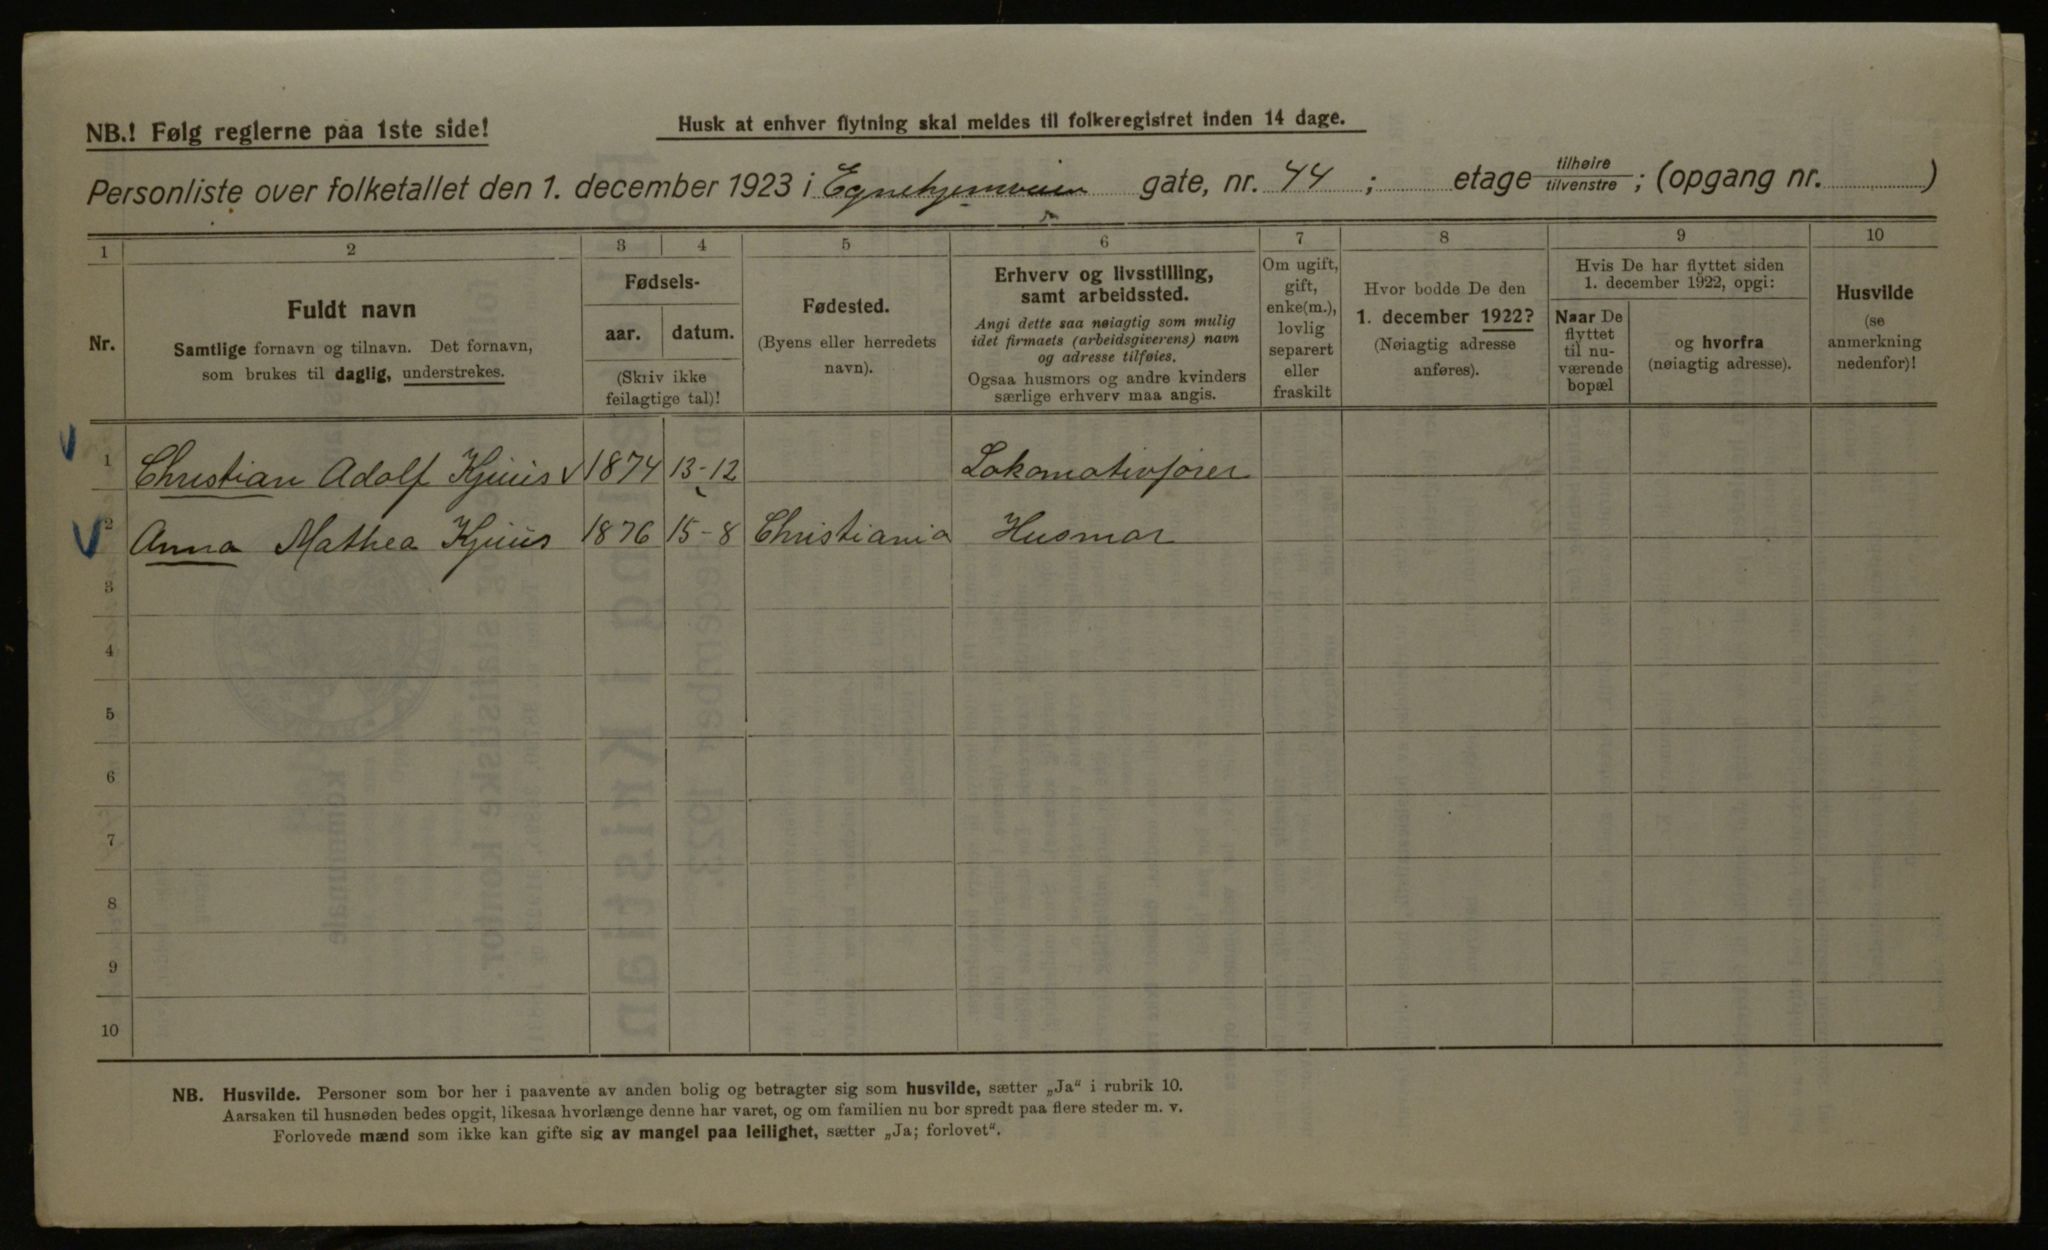 NB.! Følg reglerne paa 1ste side!
Husk at enhver flytning skal meldes til folkeregistret inden 14 dage.
Personliste over folketallet den 1. december 1923 i Egnehjemveien gate, nr. 44 ; etage tilhøire tilvenstre ; (opgang nr. )
1 2 3 4 5 6 7 8 9 10
Nr.
Fuldt navn
Samtlige fornavn og tilnavn. Det fornavn,
som brukes til daglig, understrekes.
Fødsels-
aar. datum.
(Skriv ikke
feilagtige tal)!
Fødested.
(Byens eller herredets
navn).
Erhverv og livsstilling,
samt arbeidssted.
Angi dette saa nøiagtig som mulig
idet firmaets (arbeidsgiverens) navn
og adresse tilføies.
Ogsaa husmors og andre kvinders
særlige erhverv maa angis.
Om ugift,
gift,
enke(m.),
lovlig
separert
eller
fraskilt
Hvor bodde De den
1. december 1922?
(Nøiagtig adresse
anføres).
Hvis De har flyttet siden
1. december 1922, opgi:
Naar De
flyttet
til nu-
værende
bopæl
og hvorfra
(nøiagtig adresse).
Husvilde
(se
anmerkning
nedenfor)!
1 Christian Adolf Kjuus 1874 13-12 Lokomotivfører
2 Anna Mathea Kjuus 1876 15-8 Christiania Husmor
3
4
5
6
7
8
9
10
NB. Husvilde. Personer som bor her i paavente av anden bolig og betragter sig som husvilde, sætter „Ja" i rubrik 10.
Aarsaken til husnøden bedes opgit, likesaa hvorlænge denne har varet, og om familien nu bor spredt paa flere steder m. v.
Forlovede mænd som ikke kan gifte sig av mangel paa leilighet, sætter „Ja; forlovet".